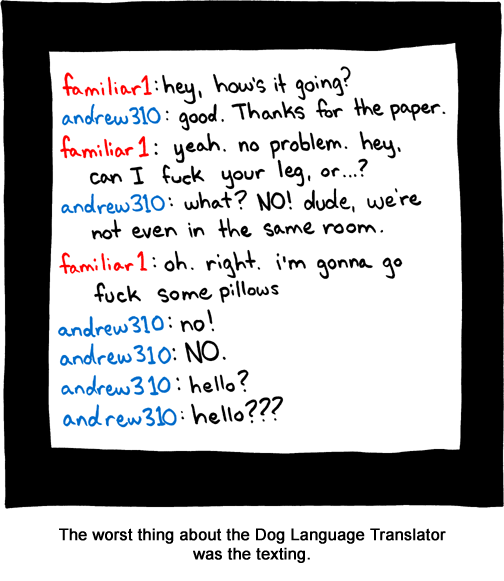 familiar1: hey, how's it going?
andrew310: good. Thanks for the paper.
familiar1: yeah. no problem. hey,
can I fuck your leg, or...?
andrew310: what? NO! dude, we're
not even in the same room.
familiar1: oh. right. i'm gonna go
fuck some pillows
andrew310: no!
andrew310: NO.
andrew310: hello?
andrew310: hello???
The worst thing about the Dog Language Translator
was the texting.